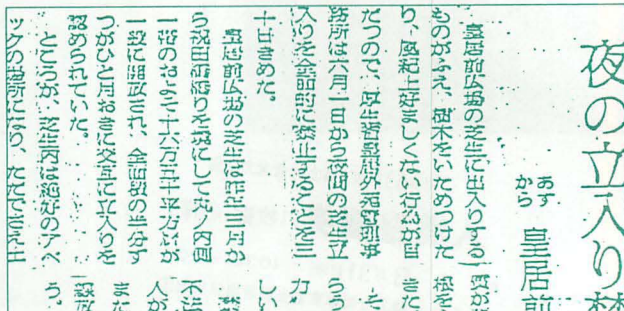 夜の立入り禁
あす
から
皇居前
皇居前広場の芝生に出入りする
ものがふえ、樹木をいためつけた
り、風紀上好ましくない行為が目
だつので、厚生省皇居外苑管理事
務所は六月一日から夜間の芝生立
入りを全面的に禁止することを三
十日きめた。
皇居前広場の芝生は昨年三月か
ら祝田橋通りを境にして丸ノ内側
一帯のおよそ十六万五千平方㍍が
一般に開放され、全面積の半分ず
つがひと月おきに交互に立入りを
認められていた。
ところが、芝生内は絶好のアベ
ックの場所になり、ただでさえ土
質が
根を
きた
らう
そ
力
しい
不法
人が
また
一般放
う。